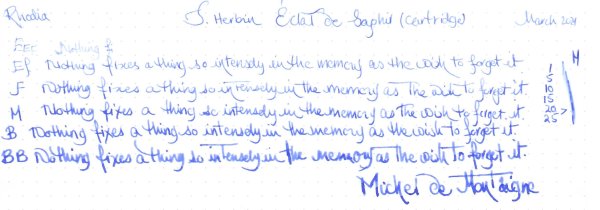 Rhodia J. Herbin Éclat de Saphir (Cartridge) March 2011
EEF Nothing f
EF Nothing fixes a thing so intensely in the memory as the wish to forget it.
F Nothing fixes a thing so intensely in the memory as the wish to forget it.
M Nothing fixes a thing so intensely in the memory as the wish to forget it.
B Nothing fixes a thing so intensely in the memory as the wish to forget it.
BB Nothing fixes a thing so intensely in the memory as the wish to forget it.
Michel de Montaigne
M
1
5
10
15
20 >
25